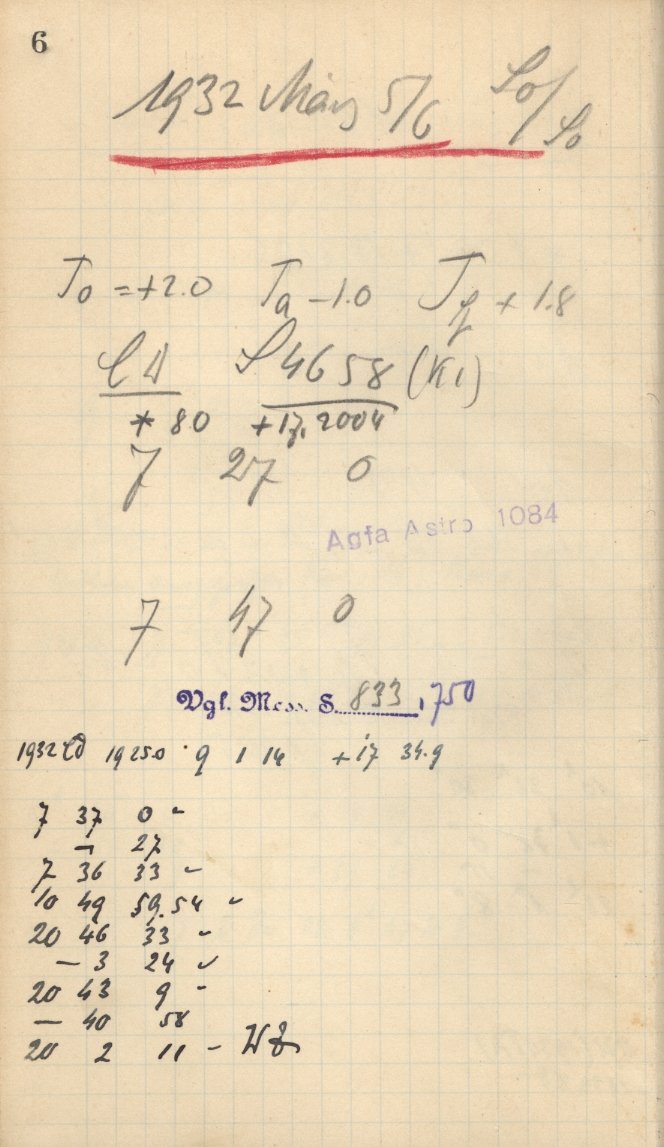 6
1932 März 5/6 So/So
T₀ = +2.0 Tₐ -1.0 T + 1.8
S 4658 (K1)
* 80 +17, 2004
7 27 0
Agfa Astro 1084
7 47 0
Vgl. Mess. S. 833, 750
1932 1925.0 9 1 14 +17 34.9
7 37 0 -
- 27
7 36 33 -
10 49 59.54 -
20 46 33 -
- 3 24 -
20 43 9 -
- 40 58
20 2 11 -